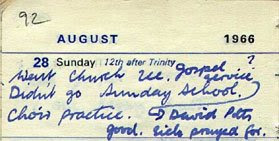 92
AUGUST 1966
?
28 Sunday 12th after Trinity
Went Church Gospel service
Didn't go Sunday School.
Choir practice. David Potts
good. Girls prayed for.